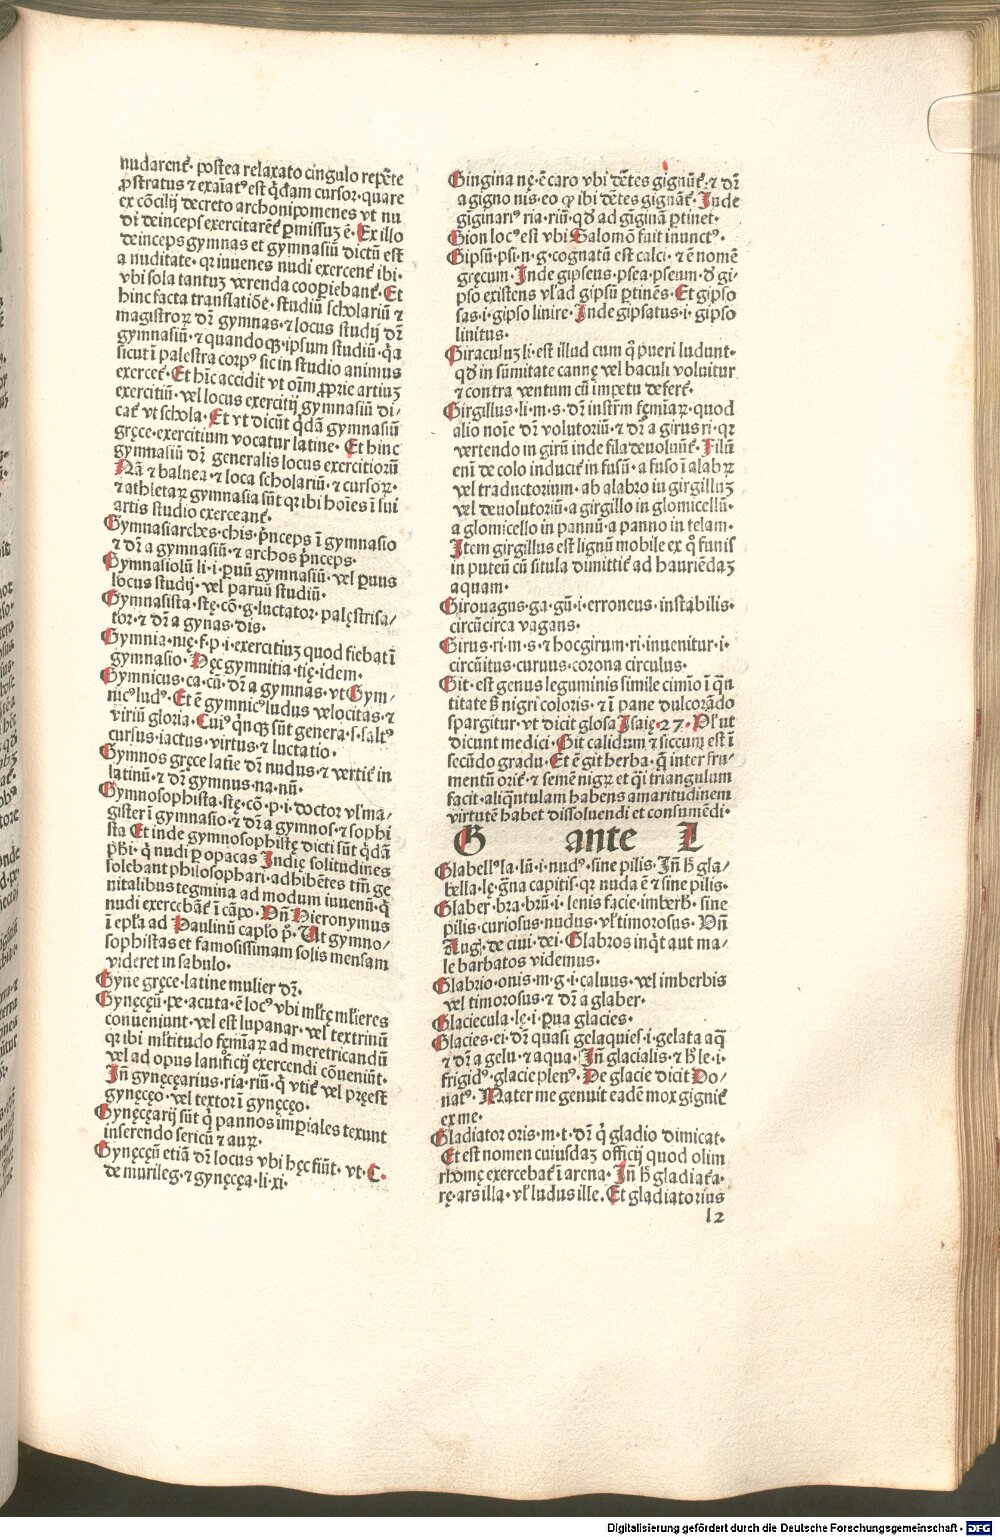 nudarenť· postea relaxato cingulo repẽte
ꝓstratus ⁊ exaĩatꝰ est q̃dam cursor· quare
ex cõcilij decreto archonipomenes vt nu
di deinceps exercitarenť ꝑmissuʒ ẽ· Ex illo
deinceps gymnas et gymnasiũ dictũ est
a nuditate· qꝛ iuuenes nudi exercenť ibi·
vbi sola tantuʒ verenda cooꝑiebanť· Et
hinc facta translatiõẽ· studiũ scholariũ ⁊
magistroꝝ dꝛ̃ gymnas· ⁊ locus studij dꝛ̃
gymnasiũ· ⁊ quandoqꝫ· ipsum studiũ· q̃a
sicut ĩ palestra corpꝰ sic in studio animus
exerceť· Et hĩc accidit vt oĩm ꝓprie artiuʒ
exercitiũ· vel locus exercitij gymnasiũ di/
cať vt schola· Et vt dicũt q̃dã gymnasiũ
gręce· exercitium vocatur latine· Et hinc
gymnasiũ dꝛ̃ generalis locus exercitiorũ
Nã ⁊ balnea· ⁊ loca scholariũ· ⁊ cursoꝝ·
⁊ athletaꝝ gymnasia sũt qꝛ ibi hoĩes ĩ sui
artis studio exerceanť·
Gymnasiarches· chis· p̃nceps ĩ gymnasio
⁊ dꝛ̃ a gymnasiũ· ⁊ archos p̃nceps·
Gymnasiolũ li· i· ꝑuũ gymnasiũ· vel ꝑuus
locus studij· vel paruũ studiũ·
Gymnasista· stę· cõ· g· luctator· palęstrisa/
tor· ⁊ dꝛ̃ a gynas· dis·
Gymnia· nię· f· p· i· exercitiuʒ quod fiebat ĩ
gymnasio· Hęc gymnitia· tię· idem·
Gymnicus· ca· cũ· dꝛ̃ a gymnas· vt Gym/
nicꝰ ludꝰ· Et ẽ gymnicꝰ ludus velocitas· ⁊
viriũ gloria· Cuiꝰ q̃nqꝫ sũt genera· s· saltꝰ
cursus· iactus· virtus· ⁊ luctatio·
Gymnos gręce latie dꝛ̃ nudus· ⁊ vertiť in
latinũ· ⁊ dꝛ̃ gymnus· na· nũ·
Gymnosophista· stę· cõ· p· i· doctor vľ ma/
gister ĩ gymnasio· ⁊ dꝛ̃ a gymnos· ⁊ sophi
sta Et inde gymnosophistę dicti sũt q̃dã
ph̃i· q̃ nudi ꝑ opacas Indię solitudines
solebant philosophari· adhibẽtes tm̃ ge
nitalibus tegmina ad modum iuuenũ· q̃
nudi exercebãť ĩ cãpo· Vñ Hieronymus
ĩ epľa ad Paulinũ capľo p̃· Ut gymno/
sophistas et famosissimam solis mensam
videret in sabulo·
Gyne gręce· latine mulier dꝛ̃·
Gynęcęũ· pe· acuta· ẽ locꝰ vbi mľtę mľieres
conueniunt· vel est lupanar· vel textrinũ
qꝛ ibi mľtitudo fęmiaꝝ ad meretricandũ
vel ad opus lanificij exercendi cõueniũt·
Iñ gynęcęarius· ria· riũ· q̃ vtiť vel pręest
gynęcęo· vel textor ĩ gynęcęo·
Gynęcęarij sũt q̃ pannos imꝑiales texunt
inserendo sericũ ⁊ auꝝ·
Gynęcęũ etiã dꝛ̃ locus vbi hęc fiũt· vt· C·
de murileg· ⁊ gynęcęa· li· xi·
Gingina nę· ẽ caro vbi dẽtes gignũť· ⁊ dꝛ̃
a gigno nis· eo ꝙ ibi dẽtes gignãť· Inde
giginariꝰ ria· riũ· qď ad gĩginã ꝑtinet·
Gion locꝰ est vbi Salomõ fuit inunctꝰ·
Gipsũ· psi· n· g· cognatũ est calci· ⁊ ẽ nomẽ
gręcum· Inde gipseus· psea· pseum· ď gi·
pso existens vľ ad gipsũ ꝑtinẽs· Et gipso
sas· i· gipso linire· Inde gipsatus· i· gipso
linitus·
Giraculuʒ li· est illud cum q̃ pueri ludunt·
qď in sũmitate cannę vel baculi voluitur
⁊ contra ventum cũ impetu deferť·
Girgillus· li· m· s· dꝛ̃ instr̃m fęmiaꝝ· quod
alio noĩe dꝛ̃ volutoriũ· ⁊ dꝛ̃ a girus ri· qꝛ
vertendo in girũ inde fila deuoluũť· Filũ
enĩ de colo induciť in fusũ· a fuso ĩ alabꝝ
vel traductorium· ab alabro in girgilluʒ
vel deuolutoriũ· a girgillo in glomicellũ·
a glomicello in pannũ· a panno in telam·
Item girgillus est lignũ mobile ex q̃ funis
in puteũ cũ situla dimittiť ad hauriẽdaʒ
aquam·
Girouagus· ga· gũ· i· erroneus· instabilis·
circũcirca vagans·
Girus· ri· m· s· ⁊ hoc girum· ri· inuenitur· i·
circũitus· curuus· corona circulus·
Git· est genus leguminis simile cimio ĩ q̃n
titate s̃ nigri coloris· ⁊ ĩ pane dulcorãdo
spargitur· vt dicit glosa Isaię· 27· Pľ ut
dicunt medici· Git calidum ⁊ siccum est ĩ
secũdo gradu· Et ẽ git herba· q̃ inter fru·
mentũ oriť· ⁊ semẽ nigꝝ et q̃i triangulum
facit· aliq̃ntulam habens amaritudinem
virtutẽ habet dissoluendi et consumẽdi·
G ante L
Glabellꝰ la· lũ· i· nudꝰ· sine pilis· Iñ ɦ gla/
bella· lę· g̃na capitis· qꝛ nuda ẽ ⁊ sine pilis·
Glaber· bra· brũ· i· lenis facie· imberɓ· sine
pilis· curiosus· nudus· vľ timorosus· Vñ
Aug̃· de ciui· dei· Glabros inq̃t aut ma·
le barbatos videmus·
Glabrio· onis· m· g· i· caluus· vel imberbis
vel timorosus· ⁊ dꝛ̃ a glaber·
Glaciecula· lę· i· ꝑua glacies·
Glacies· ei· dꝛ̃ quasi gelaquies· i· gelata aq̃
⁊ dꝛ̃ a gelu· ⁊ aqua· Iñ glacialis· ⁊ ɦ le· i·
frigidꝰ· glacie plenꝰ· De glacie dicit Do·
natꝰ· Mater me genuit eadẽ mox gigniť
ex me·
Gladiator oris· m· t· dꝛ̃ q̃ gladio dimicat·
Et est nomen cuiusdaʒ officij quod olim
rhomę exercebať ĩ arena· Iñ ɦ gladiaťa·
rę· ars illa· vľ ludus ille· Et gladiatorius
l2
Digitalisierung gefördert durch die Deutsche Forschungsgemeinschaft - DFG